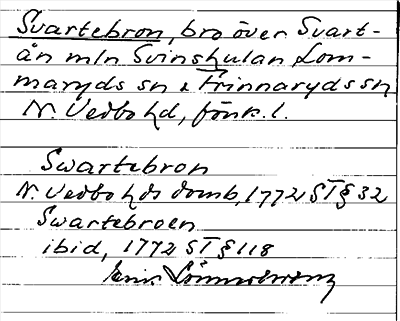 Svartebron, bro över Svart-
ån mln Svinshulan Lom-
maryds sn & Frinnaryds sn
N. Vedbo hd, Jönk. l.
Swartebron
N. Vedbo hds domb, 1772 ST § 32
Swartebroen
ibid, 1772 ST § 118